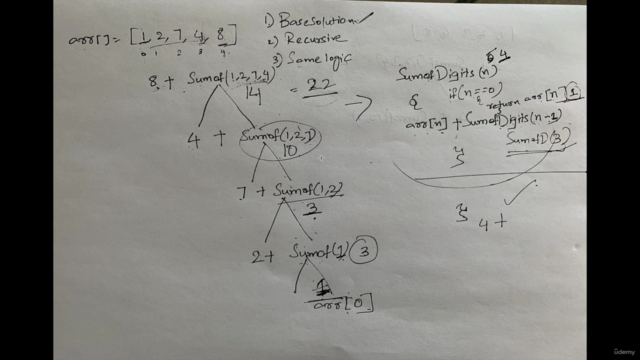 arr[] = [1, 2, 7, 4, 8]
0 1 2 3 4
1) Base solution ✓
2) Recursive
3) Same logic
8 + Sumof(1,2,7,4)
14
= 22
4 + Sumof(1,2,7)
10
7 + Sumof(1,2)
3
2 + Sumof(1) 3
1
arr[0]
SumofDigits(n)
4
{ if(n==0)
{ return arr[n] 1
arr[n] + SumofDigits(n-1)
} SumofD(3)
} 4 +
udemy